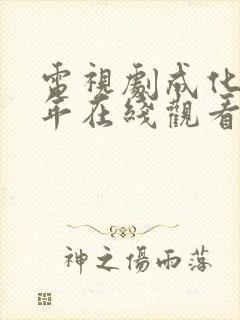 電視劇成化
年在綫觀看
神之傷雨落